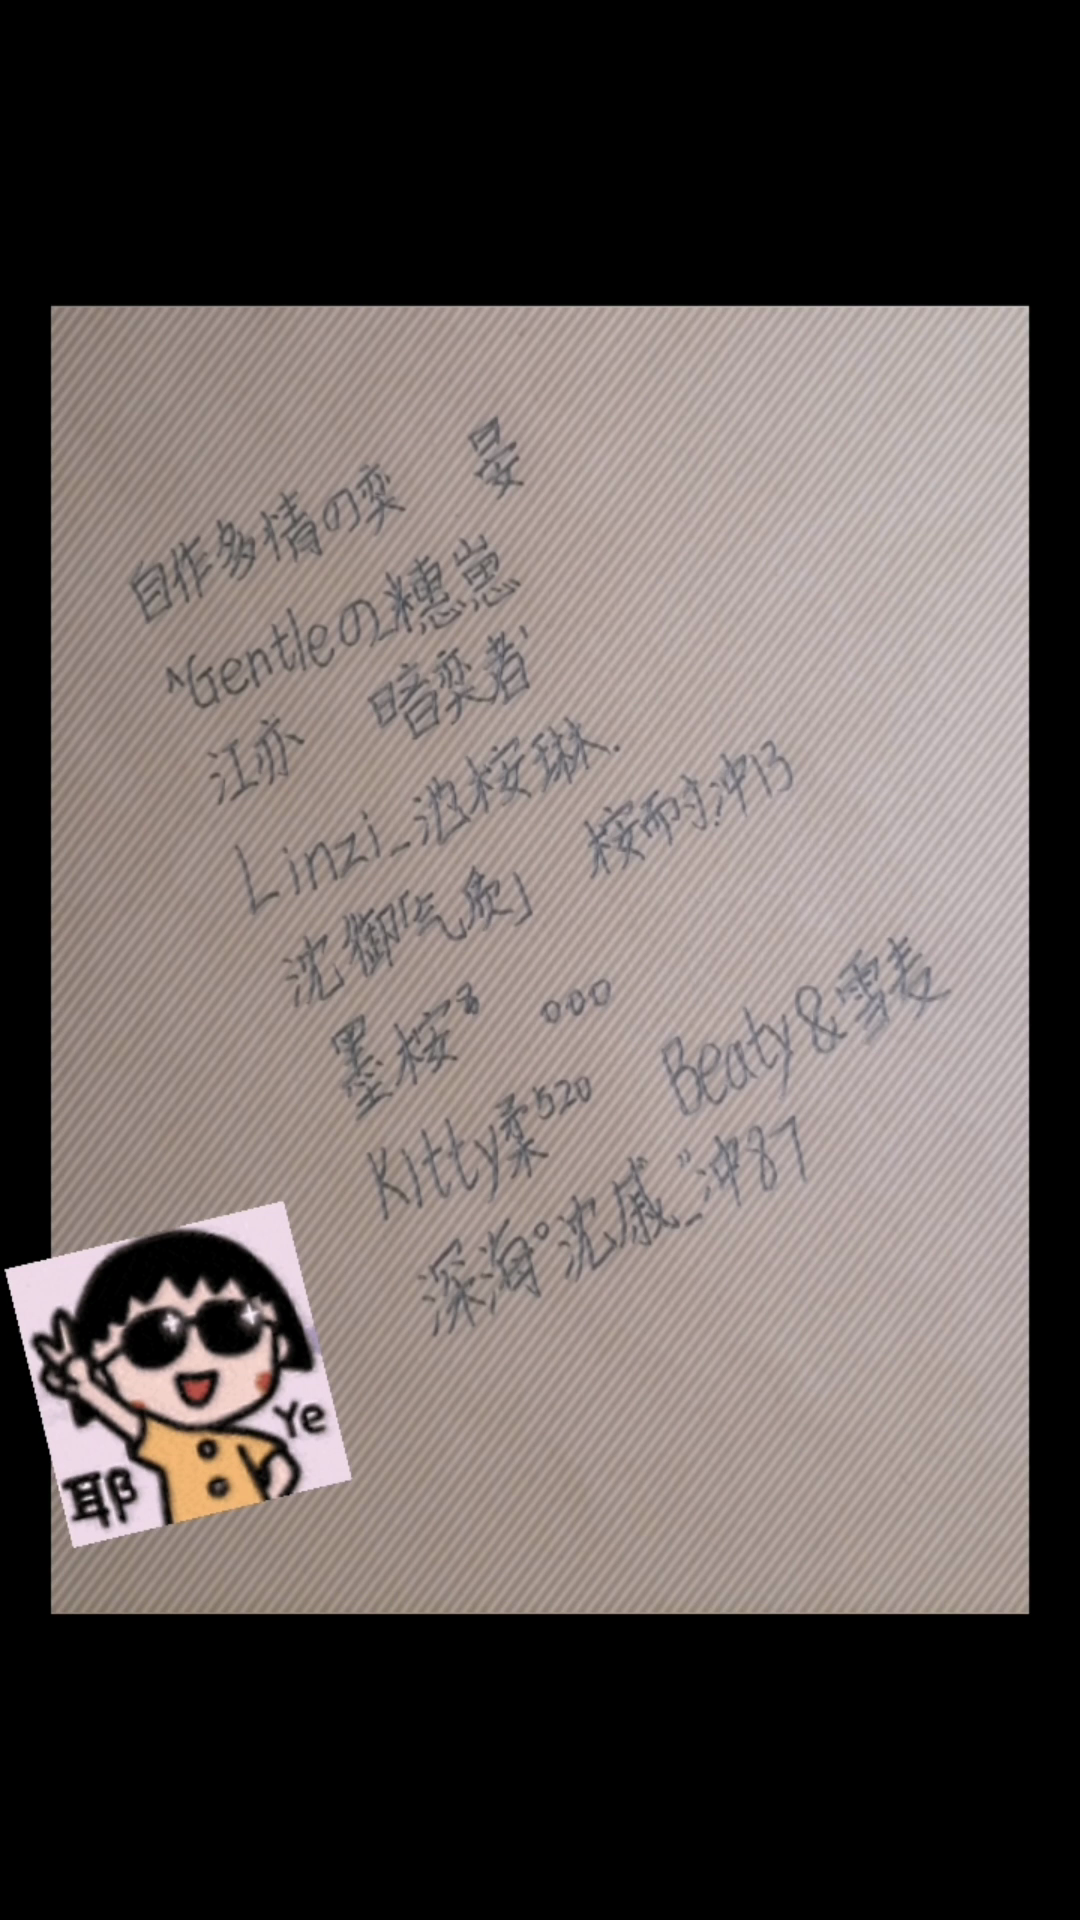 自作多情の奕 晏
^Gentleの_穗崽
江亦 暗奕者'
Linzi_沈桉琳.
沈御「气质」 桉耐冲13
墨桉 ooo
Kitty柔520 Beaty&雪麦
深海°沈戚"_冲87
Ye
耶